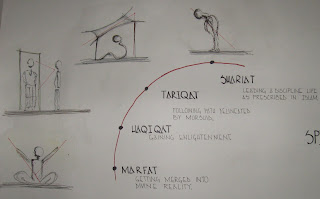 SHARIAT
LEADING A DISCIPLINE LIFE
AS PRESCRIBED IN ISLAM.
TARIQAT
FOLLOWING PATH DELINEATED
BY MURSHID.
HAQIQAT
GAINING ENLIGHTENMENT.
MARFAT
GETTING MERGED INTO
DIVINE REALITY.
SP